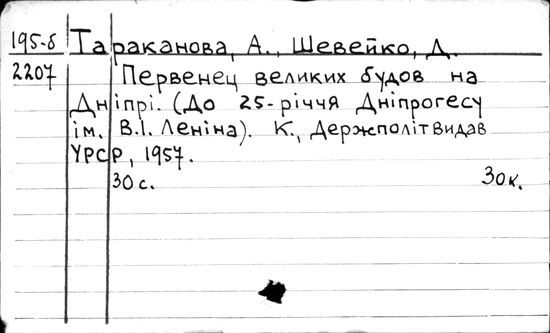 195-б Тараканова, А., Шевейко, Д.
2207 Первенец великих будов на
Дніпрі. (До 25-річчя Дніпрогесу
ім. В.І. Леніна). К., Держполітвидав
УРСР, 1957.
30 с. 30к.